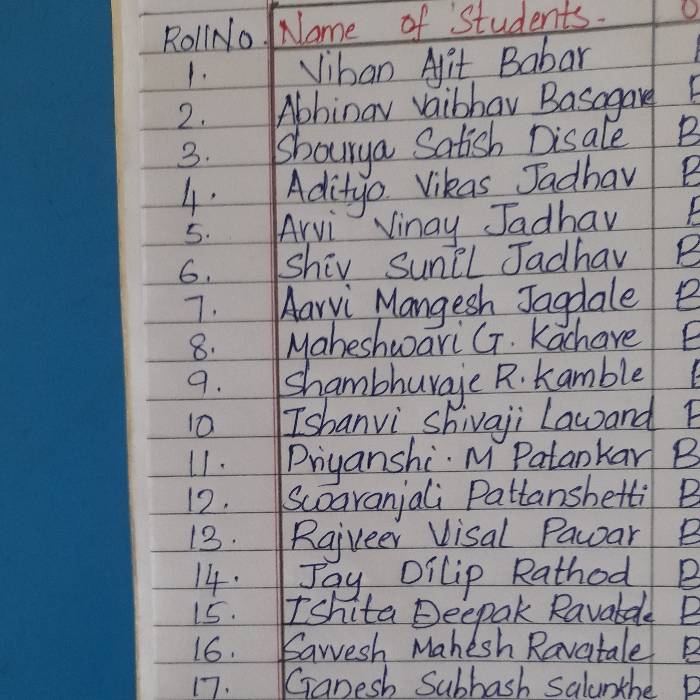 RollNo. Name of Students.
1. Vihan Ajit Babar
2. Abhinav Vaibhav Basagare B
3. Shourya Satish Disale B
4. Aditya Vikas Jadhav B
5. Arvi Vinay Jadhav B
6. Shiv Sunil Jadhav B
7. Aarvi Mangesh Jagdale B
8. Maheshwari G. Kachare B
9. Shambhuraje R. Kamble B
10 Ishanvi Shivaji Lawand B
11. Priyanshi. M Patankar B
12. Swaranjali Pattanshetti B
13. Rajveer Visal Pawar B
14. Jay Dilip Rathod B
15. Ishita Deepak Ravatale B
16. Sarvesh Mahesh Ravatale B
17. Ganesh Subhash Salunkhe B